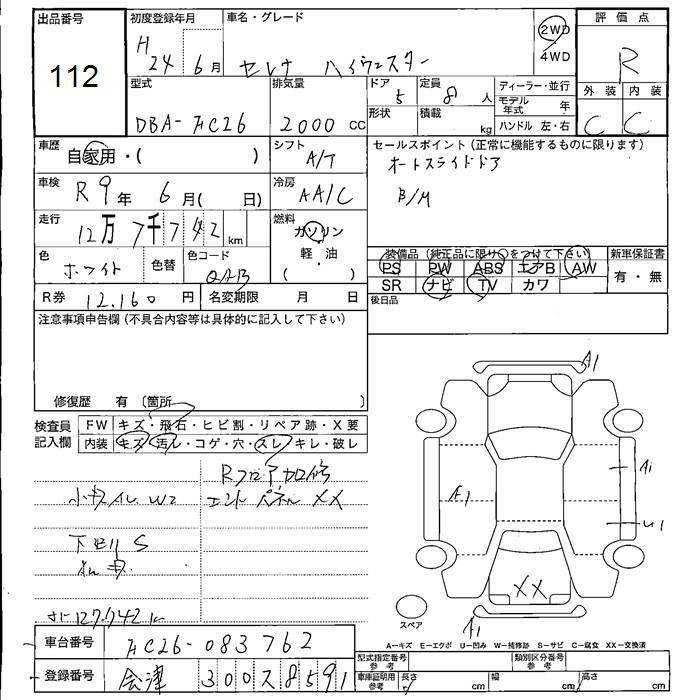 出品番号
112
初度登録年月
H 24 6月
車名・グレード
セレナ ハイウェスター
2WD
4WD
評価点
R
外装 内装
C C
型式
DBA-FC26
排気量
2000 CC
ドア 5
形状
定員 8 人
積載 kg
ディーラー・並行
モデル年式 年
ハンドル 左・右
車歴
自家用・( )
シフト
A/T
セールスポイント(正常に機能するものに限ります)
オートスライドドア
B/M
車検
R 9年 6月( 日)
冷房
AA/C
走行
12万7千742 km
燃料
ガソリン
軽・油
( )
色
ホワイト
色替
色コード
QAB
装備品(純正品に限り○をつけて下さい)
PS PW ABS エアB AW
SR ナビ TV カワ
新車保証書
有・無
R券 12,160 円
名変期限 月 日
後日品
注意事項申告欄(不具合内容等は具体的に記入して下さい)
修復歴 有〔箇所 〕
検査員記入欄
FW キズ・飛石・ヒビ割・リペア跡・X要
内装 キズ・汚レ・コゲ・穴・スレ・キレ・破レ
Rフロア加修
エンドパネル XX
W2
下回り S
127,742
A1
A1
A1
U1
XX
A1
スペア
A=キズ E=エクボ U=凹み W=補修跡 S=サビ C=腐食 XX=交換済
車台番号
FC26-083762
登録番号
会津 300 ス 8591
型式指定番号 参考
類別区分番号 参考
車庫証明用 参考
長さ cm
幅 cm
高さ cm